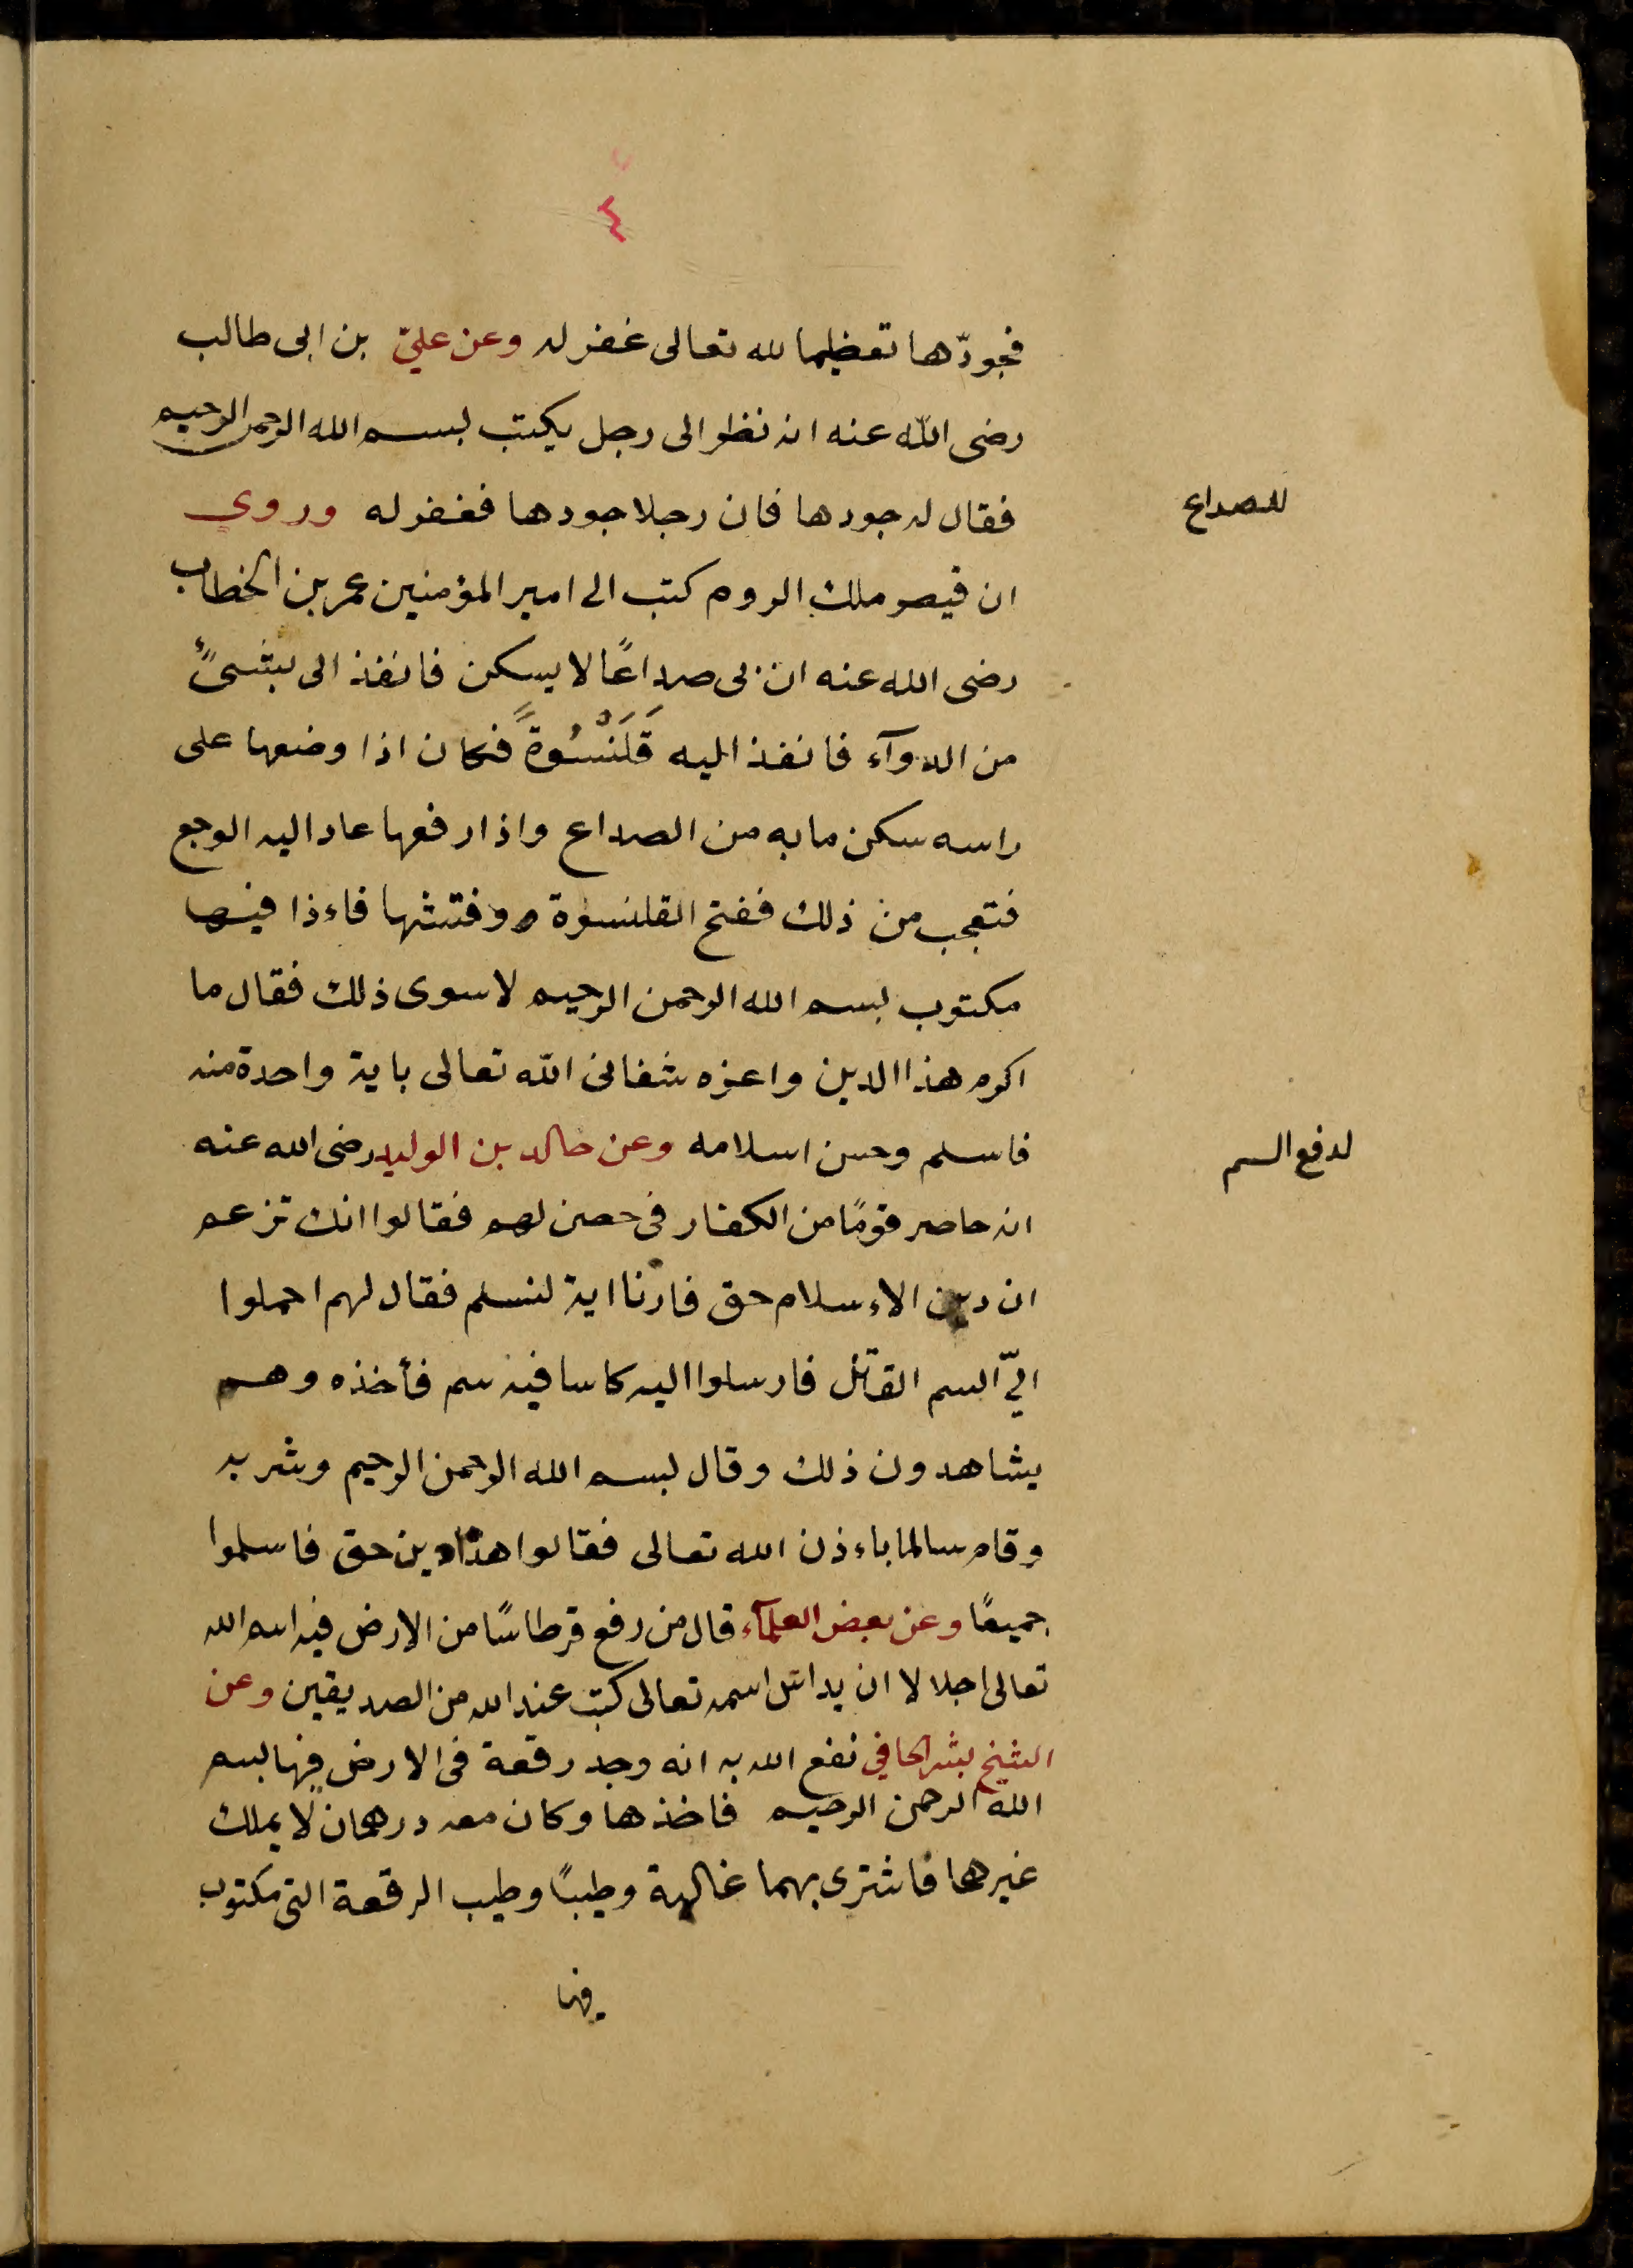 ٤
فجودّها تعظيما لله تعالى غفر له وعن عليّ بن ابى طالب
رضى اللّه عنه انه نظر الى رجل يكتب بسم الله الرحمن الرحيم
للصداع
فقال له جودها فان رجلا جودها فغفر له وروي
ان قيصر ملك الروم كتب الى امير المؤمنين عمر بن الخطاب
رضى الله عنه ان بى صداعًا لا يسكن فانفذ الى بشىءٍ
من الدوآء فانفذ اليه قَلَنْسُوةً فكان اذا وضعها على
راسه سكن ما به من الصداع واذا رفعها عاد اليه الوجع
فتعجب من ذلك ففتح القلنسوة وفتشها فاءذا فيها
مكتوب بسم الله الرحمن الرحيم لا سوى ذلك فقال ما
اكرم هذا الدين واعزه شفانى اللّه تعالى باية واحدة منه
لدفع السم
فاسلم وحسن اسلامه وعن خالد بن الوليد رضى الله عنه
انه حاصر قومًا من الكفار فى حصن لهم فقالوا انك تزعم
ان دين الاءسلام حق فارنا اية لنسلم فقال لهم احملوا
اليّ السم القاتل فارسلوا اليه كاسا فيه سم فأخذه وهم
يشاهدون ذلك وقال بسم الله الرحمن الرحيم وشربه
وقام سالما باءذن الله تعالى فقالوا هذا دين حق فاسلموا
جميعًا وعن بعض العلمآء قال من رفع قرطاسًا من الارض فيه اسم الله
تعالى اجلالا ان يداس اسمه تعالى كتب عند الله من الصديقين وعن
الشيخ بشر الحافي نفع الله به انه وجد رقعة فى الارض فيها بسم
الله الرحمن الرحيم فاخذها وكان معه درهمان لا يملك
غيرهما فاشترى بهما غالية وطيبًا وطيب الرقعة التى مكتوب
فيها